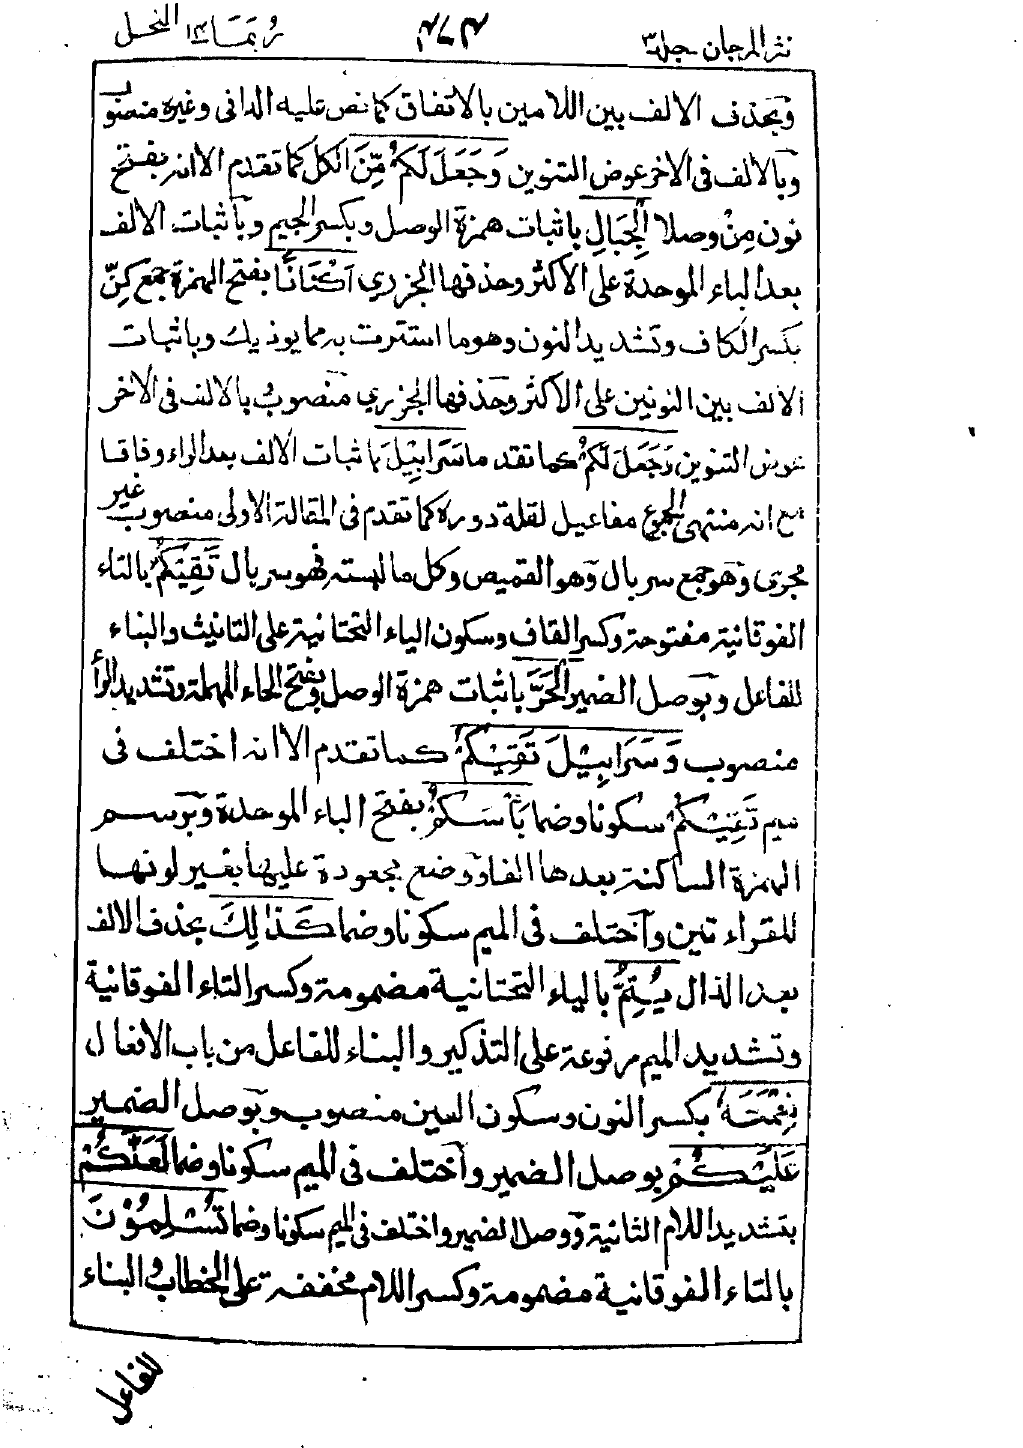 نثر المرجان جلد ٣ ٤٧٤ ربما ١٤ النحل
وبحذف الالف بين اللامين بالاتفاق كما نص عليه الدانى وغيره منصوب
وبالالف فى الاخر عوض التنوين وَجَعَلَ لَكُمْ مِّنَ الكل كما تقدم الا انه بفتح
نون مِنْ وصلا الْجِبَالِ باثبات همزة الوصل وبكسر الجيم وباثبات الالف
بعد الباء الموحدة على الاكثر وحذفها الجزري اَكْنَانًا بفتح الهمزة جمع كِنّ
بكسر الكاف وتشديد النون وهو ما استترت به مما يوذيك وباثبات
الالف بين النونين على الاكثر وحذفها الجزري منصوب بالالف فى الاخر
عوض التنوين وَجَعَلَ لَكُمْ كما تقدم سَرَابِيْلَ باثبات الالف بعد الراء وفاقا
مع انه منتهى الجموع مفاعيل لقلة دوره كما تقدم فى المقالة الاولى منصوب غير
مجرى وهو جمع سربال وهو القميص وكل ما لبسته فهو سربال تَقِيْكُمُ بالتاء
الفوقانية مفتوحة وكسر القاف وسكون الياء التحتانية على التانيث والبناء
للفاعل وبوصل الضمير الْحَرَّ باثبات همزة الوصل وبفتح الحاء المهملة وتشديد الرأ
منصوب وَسَرَابِيْلَ تَقِيْكُمْ كما تقدم الا انه اختلف فى
ميم تَقِيْكُمْ سكونا وضما بَأْسَكُمْ بفتح الباء الموحدة وبرسم
الهمزة الساكنة بعدها الفا ووضع مجعودة عليها بغير لونها
للقراءتين واختلف فى الميم سكونا وضما كَذٰلِكَ بحذف الالف
بعد الذال يُتِمُّ بالياء التحتانية مضمومة وكسر التاء الفوقانية
وتشديد الميم مرفوعة على التذكير والبناء للفاعل من باب الافعال
نِعْمَتَهٗ بكسر النون وسكون العين منصوب وبوصل الضمير
عَلَيْكُمْ بوصل الضمير واختلف فى الميم سكونا وضما لَعَلَّكُمْ
بتشديد اللام الثانية ووصل الضمير واختلف فى الميم سكونا وضما تُسْلِمُوْنَ
بالتاء الفوقانية مضمومة وكسر اللام مخففة على الخطاب والبناء
للفاعل